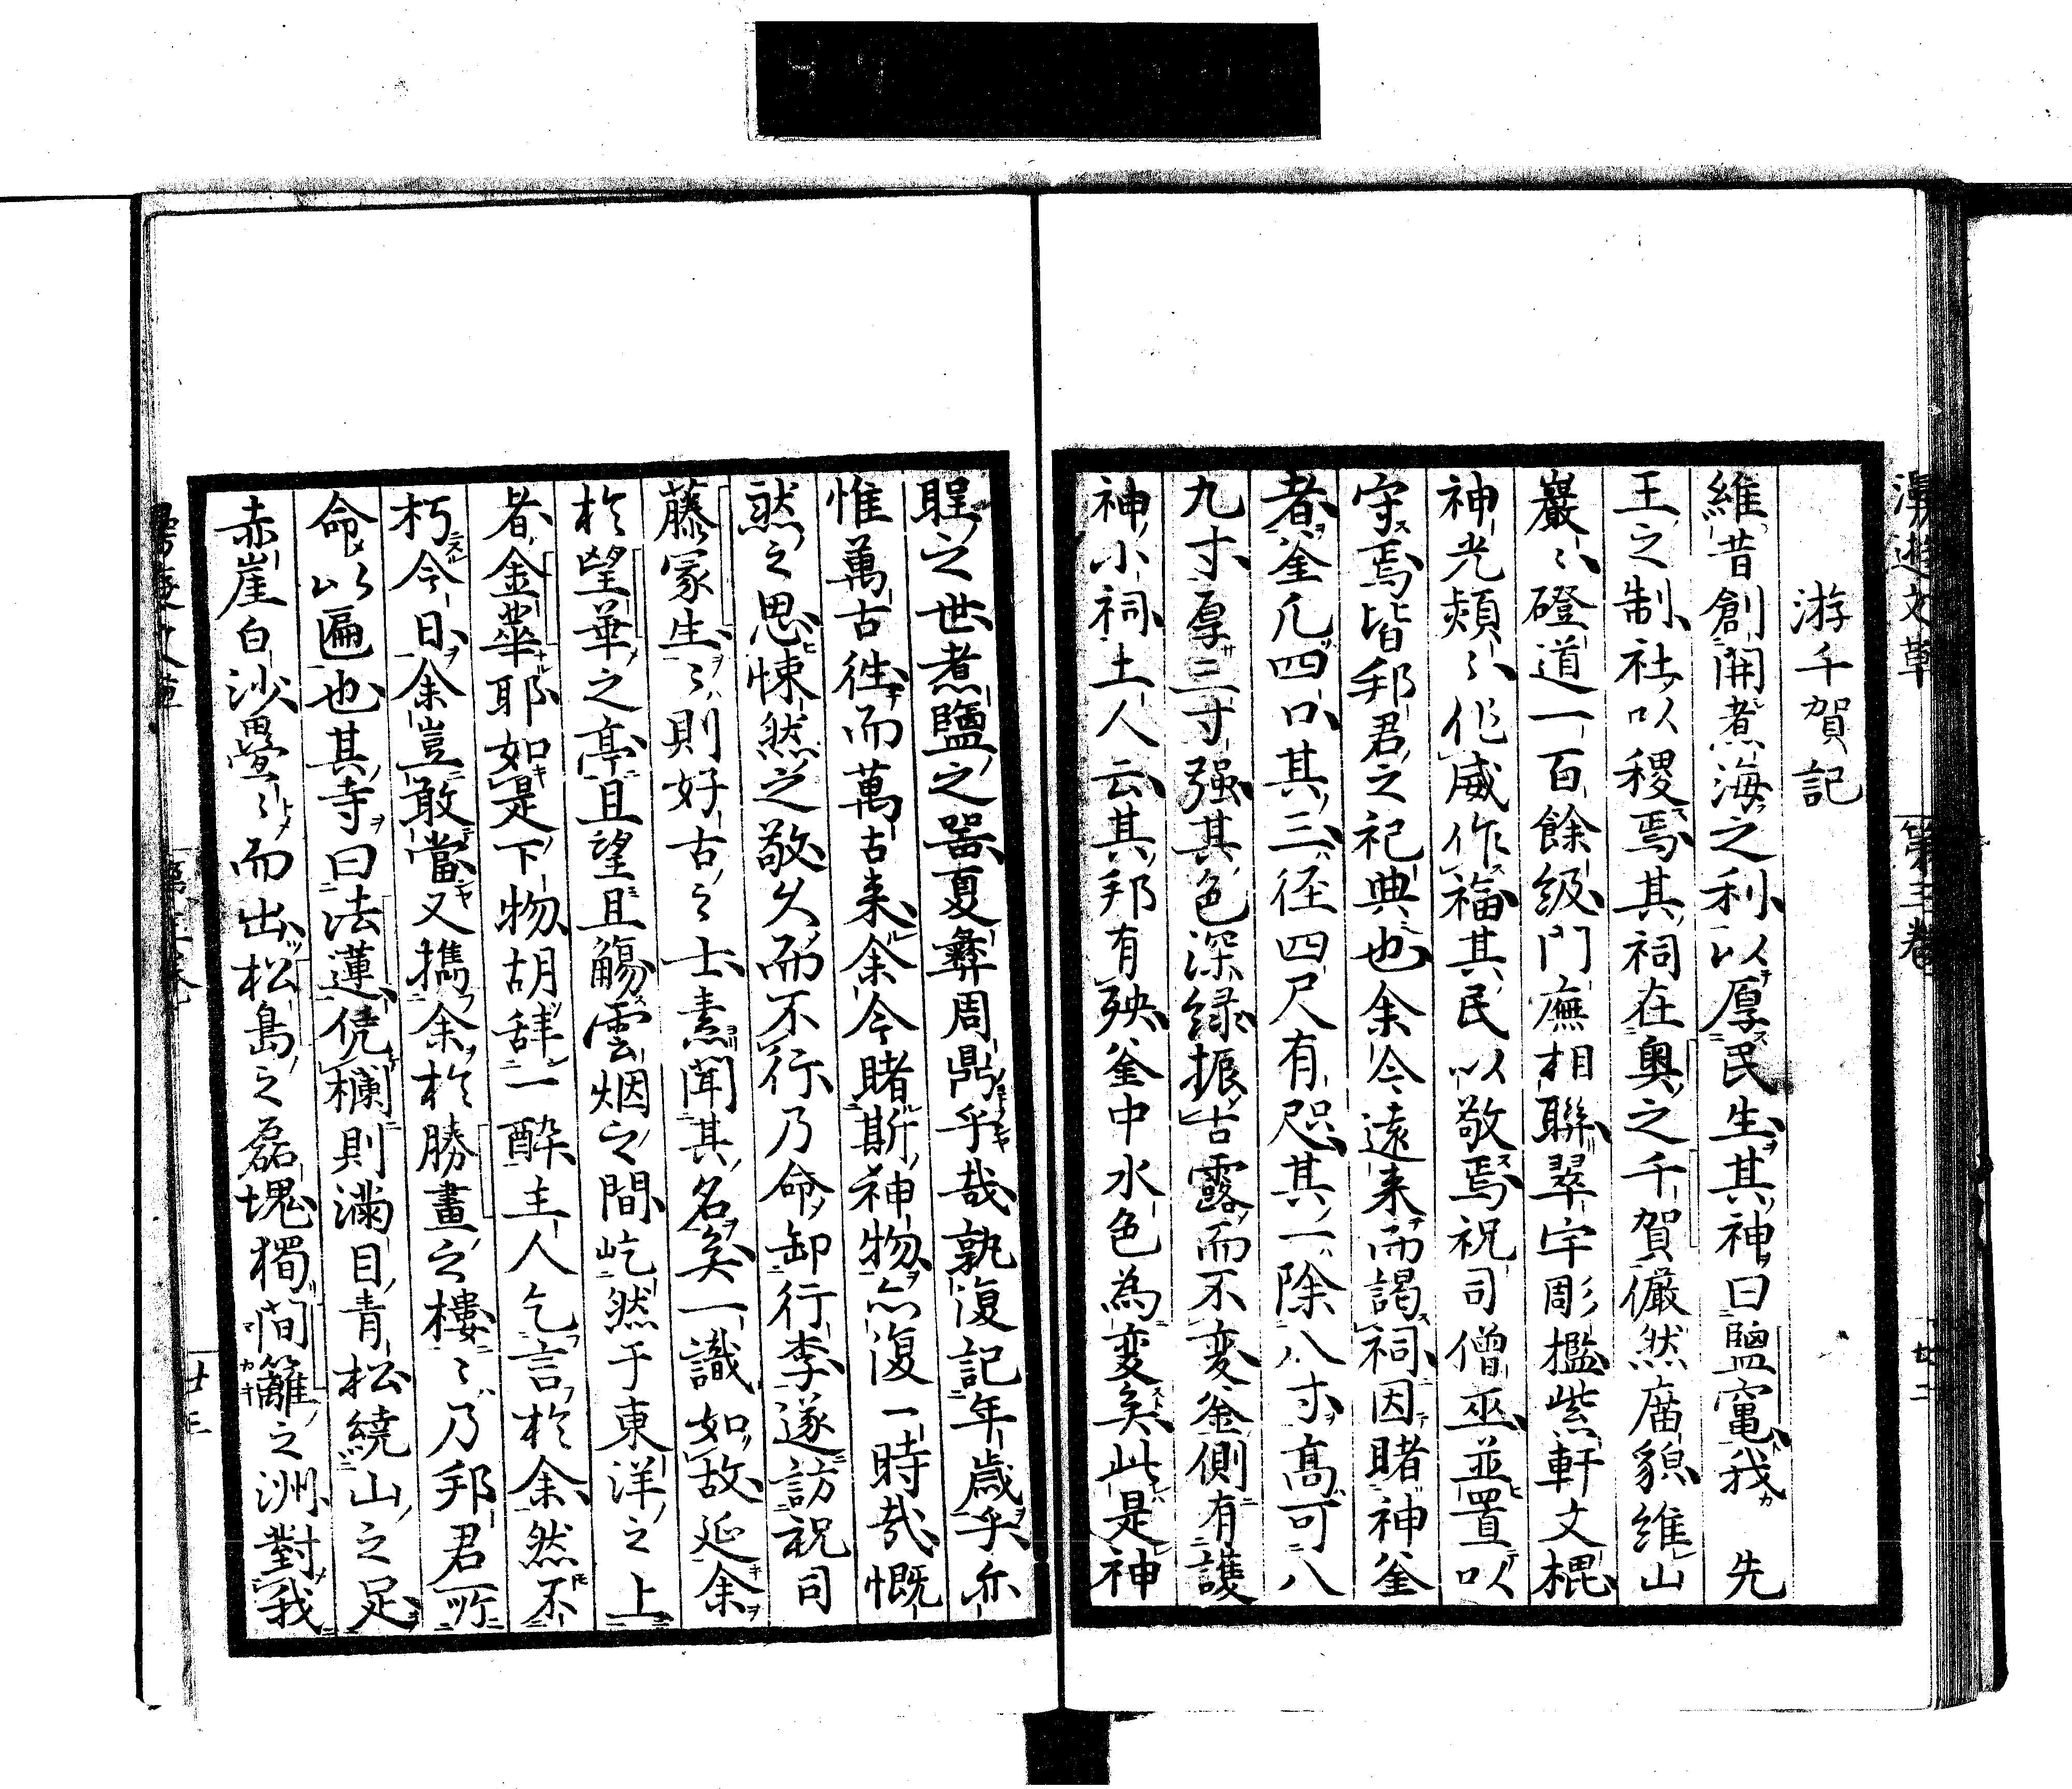 游千賀記
維昔創開煮海之利以厚民生其神曰鹽竃我　先
王之制社以稷焉其祠在奥之千賀儼然庿貌維山
巖〻磴道一百餘級門廡相聯翠宇彫檻紫軒文棍
神光熲〻作威作福其民以敬焉祝司僧巫並置以
守焉皆邦君之祀典也余今遠来而謁祠因睹神釜
者釜凡四口其三径四尺有咫其一除八寸高可八
九寸厚三寸强其色深緑振古露而不変釜側有護
神小祠土人云其邦有殃釜中水色為変矣此是神
聖之世煮鹽之噐夏彝周鼎乎哉孰復記年歳乎尓
惟萬古徃而萬古来余今睹斯神物亦復一時哉慨
然之思悚然之敬久而不行乃命卸行李遂訪祝司
藤冢生〻則好古之士素聞其名矣一識如故延余
於望華之亭且望且觴雲烟之間屹然于東洋之上
者金華耶如是下物胡辞一酔主人乞言於余然不
朽今日余豈敢當又携余於勝畫之樓〻乃邦君所
命以匾也其寺曰法蓮凭欄則満目青松繞山之足
赤崖白沙疊〻而出松島之磊塊獨籬之洲對我
第三巻
廿二
廿三